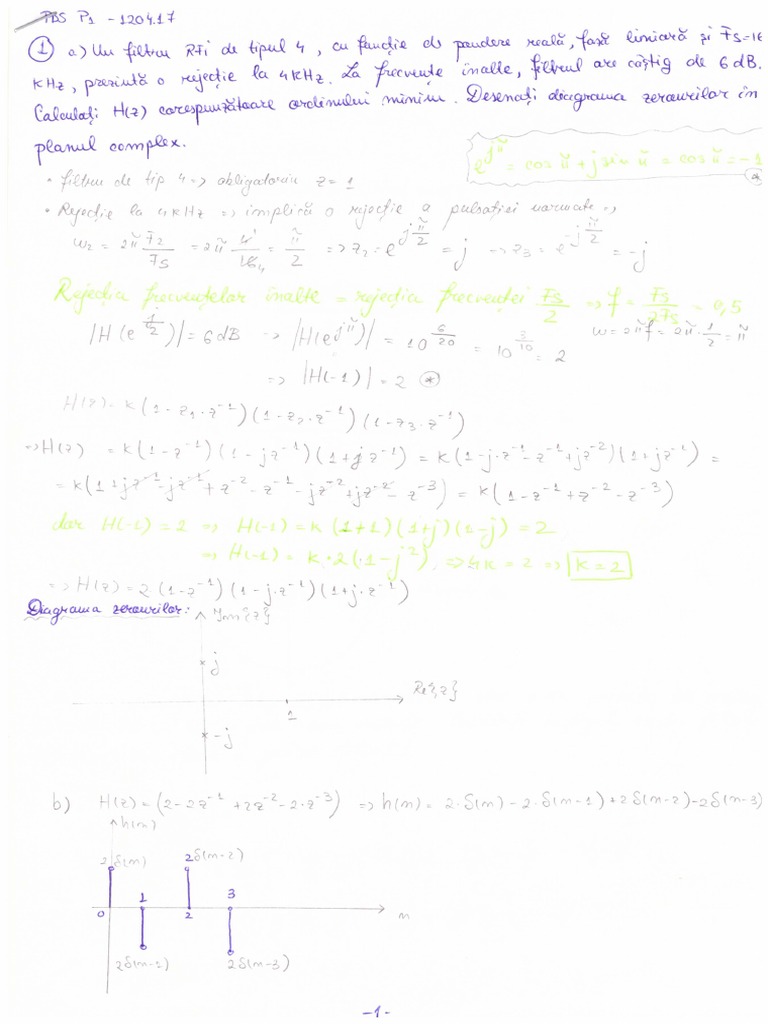 PBS P1 - 120417
① a) Un filtru RFi de tipul 4, cu funcție de pondere reală, fază liniară și Fs=16
KHz, prezintă o rejecție la 4KHz. La frecvențe înalte, filtrul are câștig de 6dB.
Calculați H(z) corespunzătoare ordinului minim. Desenați diagrama zerourilor în
planul complex.
e^{jπ} = cos π + j sin π = cos π = -1
*
• filtru de tip 4 => obligatoriu z=1
• Rejecție la 4KHz => implică o rejecție a pulsației normate =>
ω2 = 2π F2/Fs = 2π 4/16 = π/2 => z2 = e^{jπ/2} = j -> z3 = e^{-jπ/2} = -j
Rejecția frecvențelor înalte = rejecția frecvenței Fs/2 => f = Fs/2Fs = 0,5
|H(e^{j/2})| = 6dB -> |H(e^{jπ})| = 10^{6/20} = 10^{3/10} = 2 ω = 2πf = 2π·1/2 = π
=> |H(-1)| = 2 ⊛
H(z) = k(1-z1·z^{-1})(1-z2·z^{-1})(1-z3·z^{-1})
=> H(z) = k(1-z^{-1})(1-jz^{-1})(1+jz^{-1}) = k(1-j·z^{-1}-z^{-1}+jz^{-2})(1+jz^{-1}) =
= k(1+jz^{-1}-jz^{-1}+z^{-2}-z^{-1}-jz^{-2}+jz^{-2}-z^{-3}) = k(1-z^{-1}+z^{-2}-z^{-3})
dar H(-1) = 2 => H(-1) = k(1+1)(1+j)(1-j) = 2
=> H(-1) = k·2(1-j²), => 4k = 2 => k = 2
=> H(z) = 2(1-z^{-1})(1-j·z^{-1})(1+j·z^{-1})
Diagrama zerourilor: Im{z}
j
Re{z}
1
-j
b) H(z) = (2-2z^{-1}+2z^{-2}-2·z^{-3}) => h(n) = 2·δ(n)-2·δ(n-1)+2δ(n-2)-2δ(n-3)
h(n)
2δ(n) 2δ(n-2)
1 3
0 2 n
2δ(n-2) 2δ(n-3)
-1-